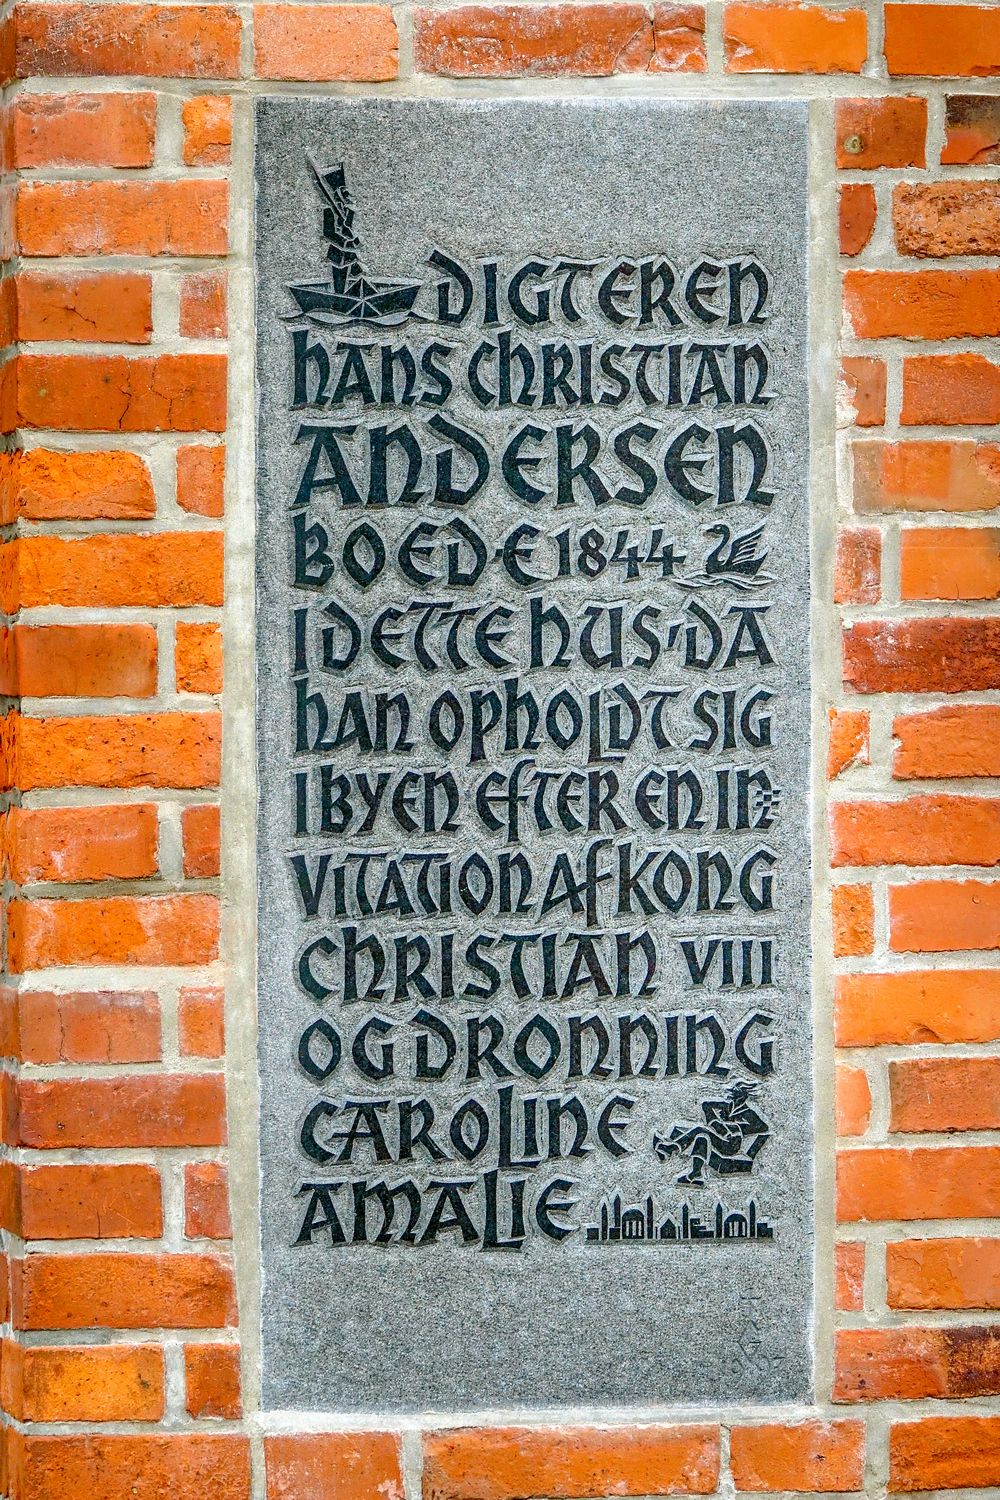 DIGTEREN
HANS CHRISTIAN
ANDERSEN
BOEDE 1844
I DETTE HUS, DA
HAN OPHOLDT SIG
I BYEN EFTER EN IN
VITATION AF KONG
CHRISTIAN VIII
OG DRONNING
CAROLINE
AMALIE